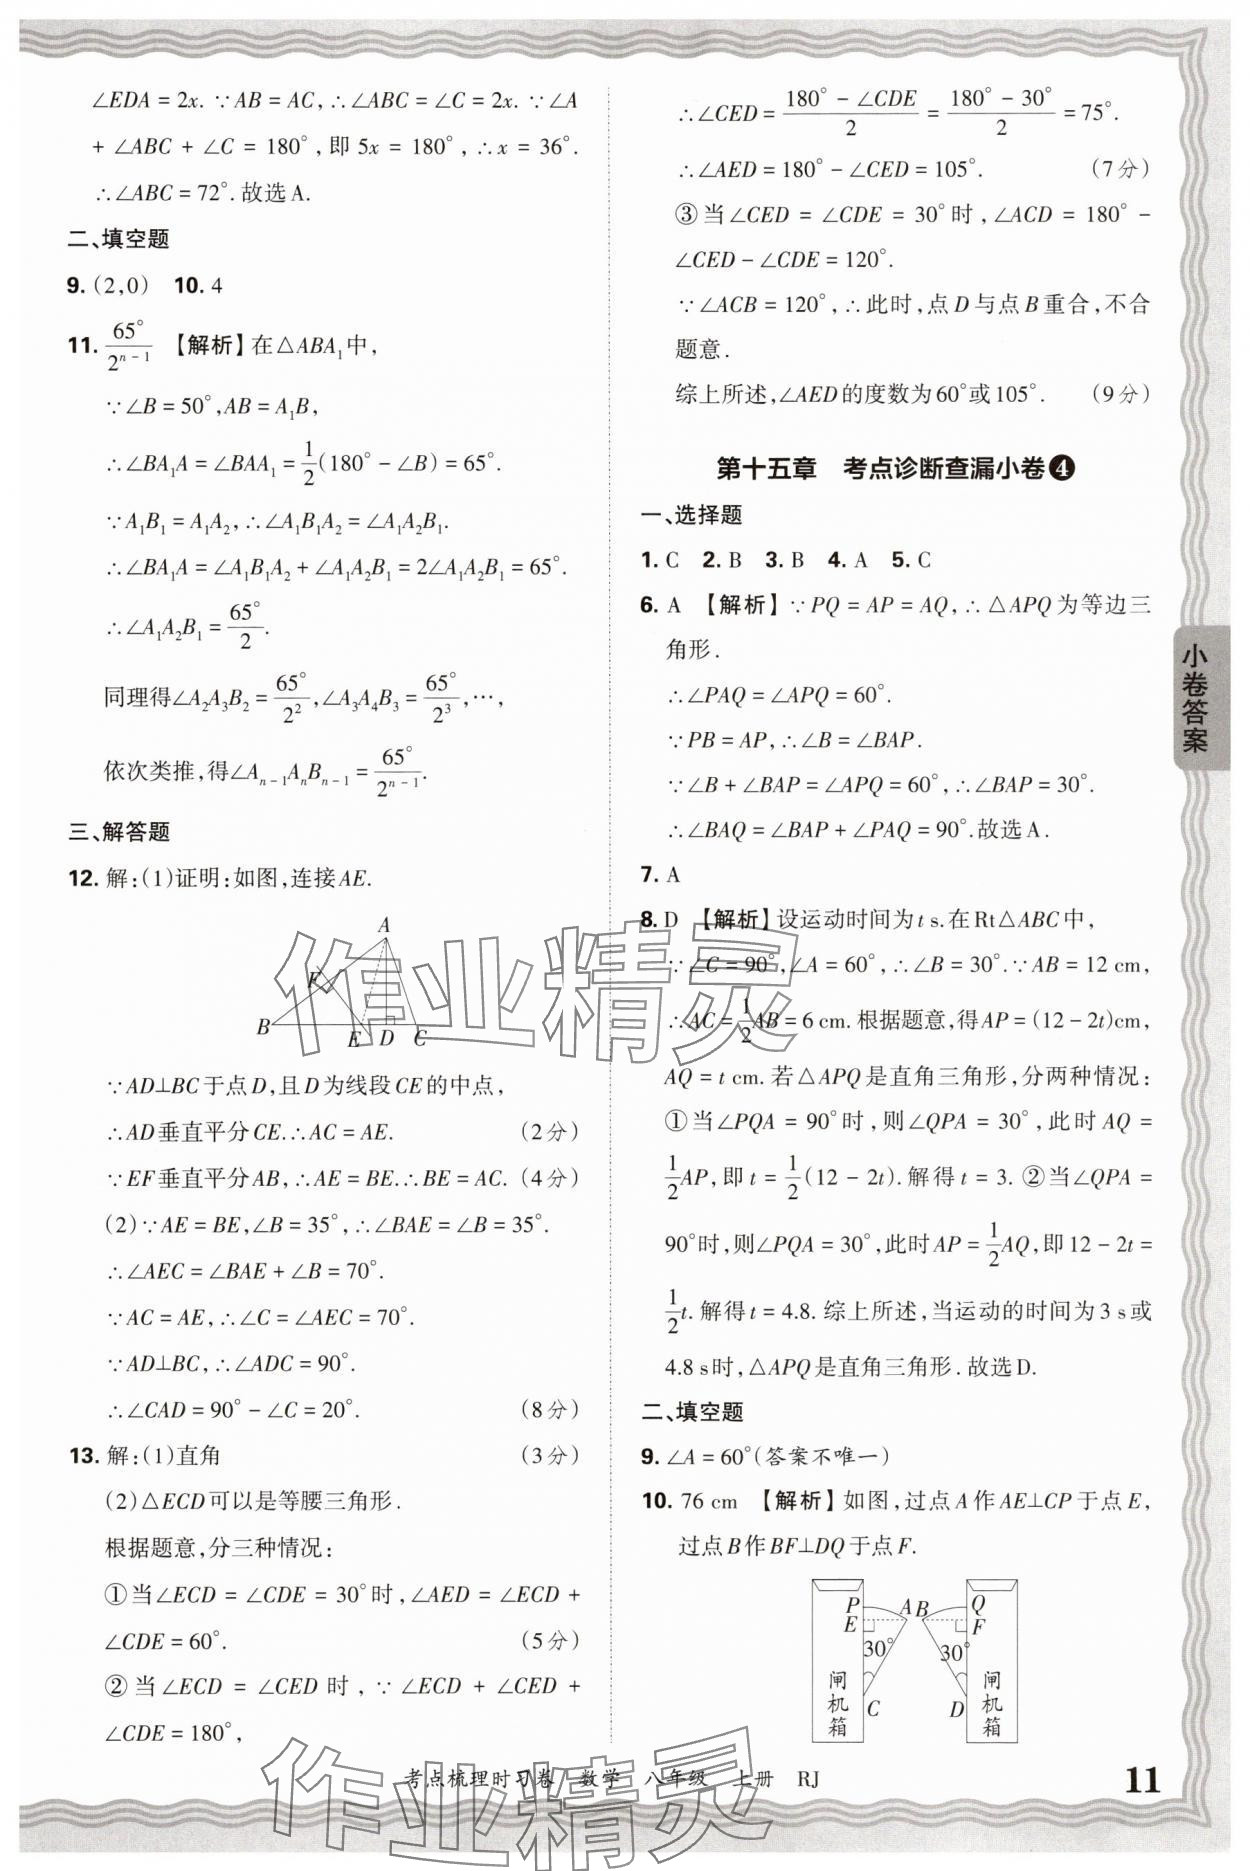 ∠EDA = 2x. ∵AB = AC, ∴∠ABC = ∠C = 2x. ∵∠A
+ ∠ABC + ∠C = 180°, 即 5x = 180°, ∴x = 36°.
∴∠ABC = 72°. 故选 A.
二、填空题
9. (2,0) 10. 4
11. 65°/2ⁿ⁻¹ 【解析】在△ABA₁中,
∵∠B = 50°, AB = A₁B,
∴∠BA₁A = ∠BAA₁ = 1/2(180° − ∠B) = 65°.
∵A₁B₁ = A₁A₂, ∴∠A₁B₁A₂ = ∠A₁A₂B₁.
∴∠BA₁A = ∠A₁B₁A₂ + ∠A₁A₂B₁ = 2∠A₁A₂B₁ = 65°.
∴∠A₁A₂B₁ = 65°/2.
同理得∠A₂A₃B₂ = 65°/2², ∠A₃A₄B₃ = 65°/2³, ⋯,
依次类推,得∠Aₙ₋₁AₙBₙ₋₁ = 65°/2ⁿ⁻¹.
三、解答题
12. 解:(1)证明:如图,连接AE.
A
F
B
E D C
∵AD⊥BC于点D,且D为线段CE的中点,
∴AD垂直平分CE. ∴AC = AE. (2分)
∵EF垂直平分AB, ∴AE = BE. ∴BE = AC. (4分)
(2)∵AE = BE, ∠B = 35°, ∴∠BAE = ∠B = 35°.
∴∠AEC = ∠BAE + ∠B = 70°.
∵AC = AE, ∴∠C = ∠AEC = 70°.
∵AD⊥BC, ∴∠ADC = 90°.
∴∠CAD = 90° − ∠C = 20°. (8分)
13. 解:(1)直角 (3分)
(2)△ECD可以是等腰三角形.
根据题意,分三种情况:
①当∠ECD = ∠CDE = 30°时, ∠AED = ∠ECD +
∠CDE = 60°. (5分)
②当∠ECD = ∠CED时, ∵∠ECD + ∠CED +
∠CDE = 180°,
∴∠CED = (180° − ∠CDE)/2 = (180° − 30°)/2 = 75°.
∴∠AED = 180° − ∠CED = 105°. (7分)
③当∠CED = ∠CDE = 30°时, ∠ACD = 180° −
∠CED − ∠CDE = 120°.
∵∠ACB = 120°, ∴此时,点D与点B重合,不合
题意.
综上所述,∠AED的度数为60°或105°. (9分)
第十五章 考点诊断查漏小卷❹
一、选择题
1. C 2. B 3. B 4. A 5. C
6. A 【解析】∵PQ = AP = AQ, ∴△APQ为等边三
角形.
∴∠PAQ = ∠APQ = 60°.
∵PB = AP, ∴∠B = ∠BAP.
∵∠B + ∠BAP = ∠APQ = 60°, ∴∠BAP = 30°.
∴∠BAQ = ∠BAP + ∠PAQ = 90°. 故选A.
7. A
8. D 【解析】设运动时间为t s. 在Rt△ABC中,
∵∠C = 90°, ∠A = 60°, ∴∠B = 30°. ∵AB = 12 cm,
∴AC = 1/2AB = 6 cm. 根据题意,得AP = (12 − 2t)cm,
AQ = t cm. 若△APQ是直角三角形,分两种情况:
①当∠PQA = 90°时,则∠QPA = 30°,此时AQ =
1/2AP,即t = 1/2(12 − 2t). 解得t = 3. ②当∠QPA =
90°时,则∠PQA = 30°,此时AP = 1/2AQ,即12 − 2t =
1/2t. 解得t = 4.8. 综上所述,当运动的时间为3 s或
4.8 s时, △APQ是直角三角形. 故选D.
二、填空题
9. ∠A = 60°(答案不唯一)
10. 76 cm 【解析】如图,过点A作AE⊥CP于点E,
过点B作BF⊥DQ于点F.
P A B Q
E F
30° 30°
C D
闸机箱 闸机箱
小卷答案
考点梳理时习卷 数学 八年级 上册 RJ
11
作业精灵
作业精灵